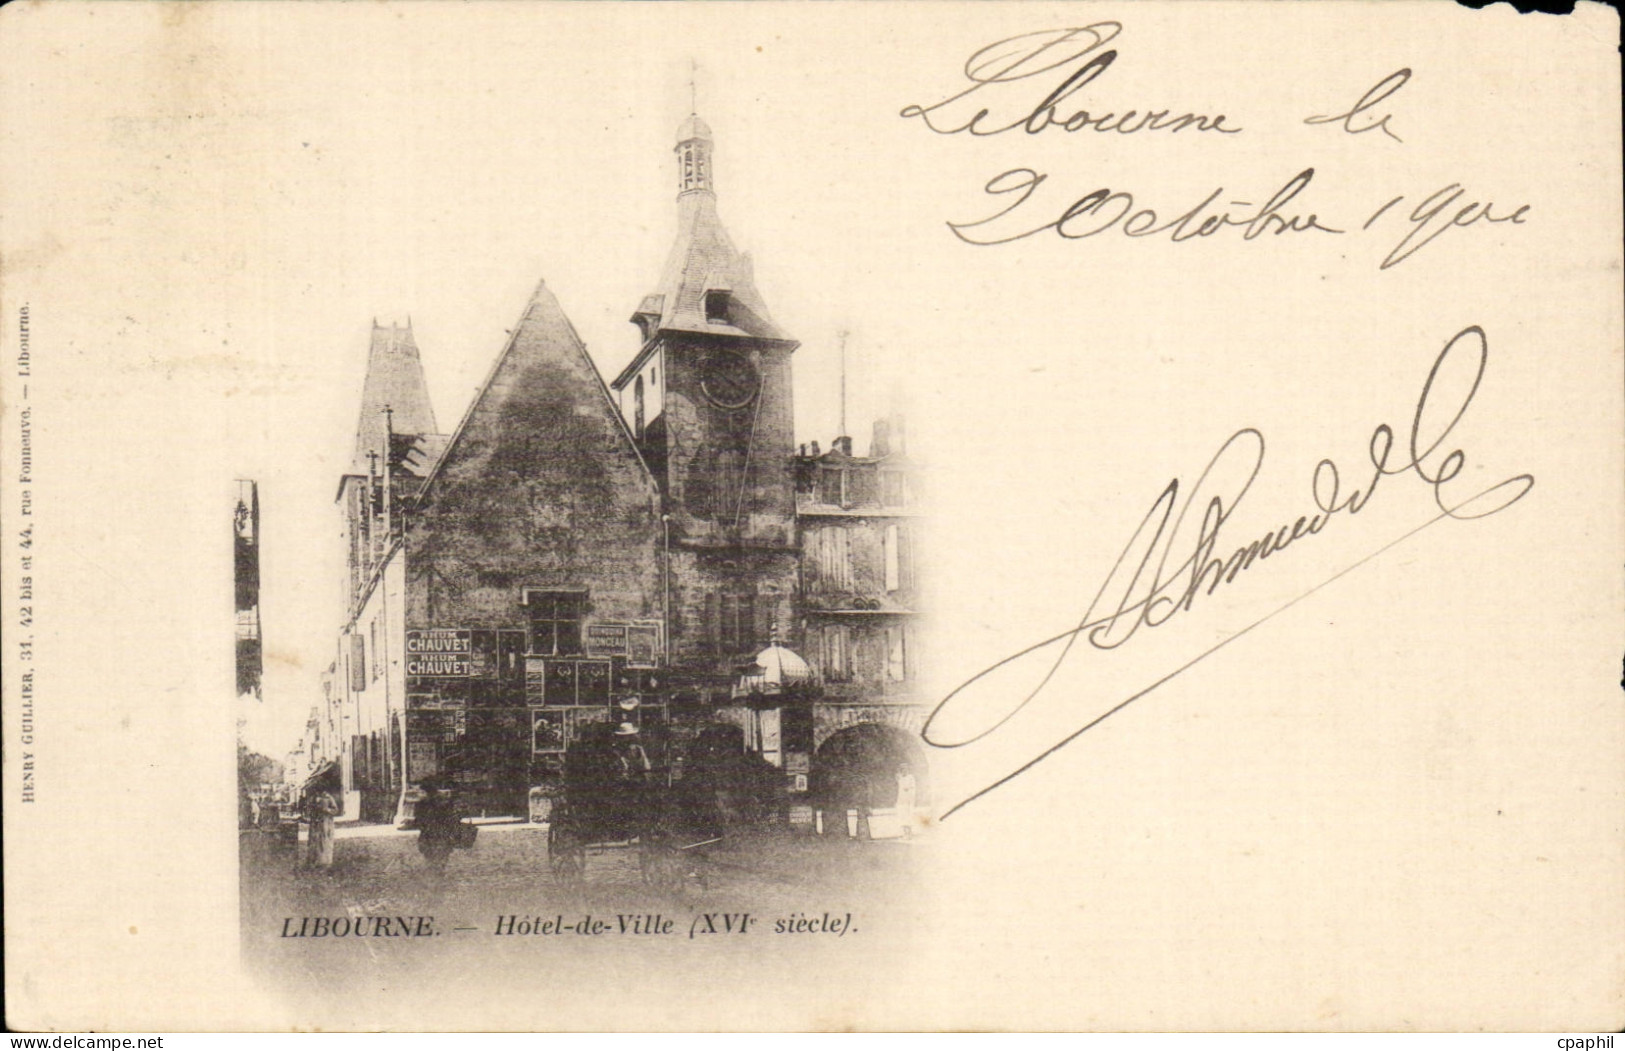 Libourne le
2 Octobre 1900
HENRY GUILLIER, 31, 42 bis et 44, rue Fonneuve. — Libourne.
RHUM
CHAUVET
RHUM
CHAUVET
MONCEAU
LIBOURNE. — Hôtel-de-Ville (XVIe siècle).
cpaphil